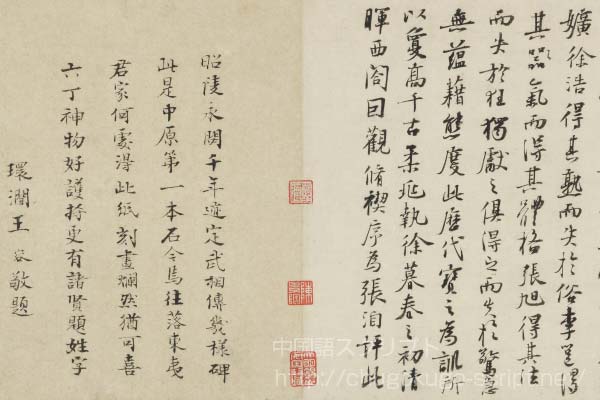 獷徐浩得其熟而失於俗李邕得
其氣而得其體格張旭得其法
而失於狂獨獻之俱得之而失於驚急
無蘊藉態度此歷代寶之為訓所
以夐高千古柔兆執徐暮春之初清
暉西閣因觀脩禊序為張洎評此
昭陵永閟千年迹定武相傳幾樣碑
此是中原第一本石今馬往落東夷
君家何處得此紙刻畫斕然猶可喜
六丁神物好護持更有諸賢題姓字
環澗王容敬題
中国語スクリプト
http://chugokugo-script.net/